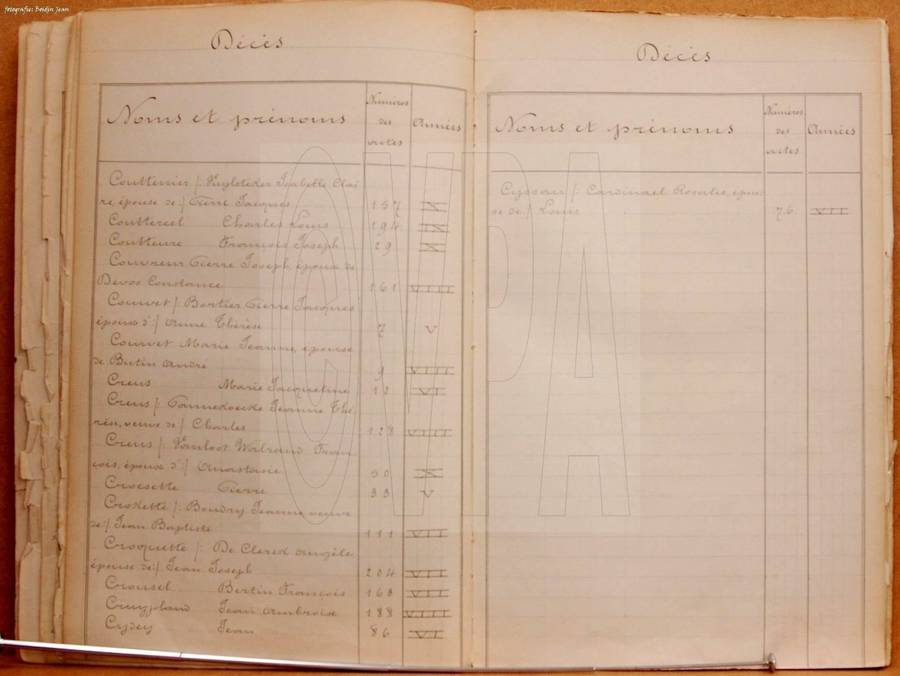 fotografie: Beidin Jean
Décès
Noms et prénoms Numéros des actes Années
Couttenier /: Isabelle Clai
re, épouse de :/ Pierre Jacques 157 IX
Couttereel Charles Louis 194 IX
Coutteure François Joseph 29 IX
Couvreur Pierre Joseph, épouse de
Devos Constance 161 VIII
Couvet /: Bertier Pierre Jacques
époux d':/ Anne Thérèse 7 V
Couvet Marie Jeanne, épouse
de Butin André 9 VIII
Creus Marie Jacqueline 12 VI
Creus /: Jeanne Thé
rèse, veuve de :/ Charles 128 VIII
Creus /: Vanloot Walrand Fran
çois, époux d':/ Anastasie 50 IX
Croesette Pierre 33 V
Crokette /: Boudry Jeanne, veuve
de :/ Jean Baptiste 111 VII
Croquette /: De Clerck Angèle
épouse de :/ Jean Joseph 204 VII
Crousel Bertin François 168 VII
Cruypland Jean Ambroise 188 VIII
Cydey Jean 86 VI
Décès
Noms et prénoms Numéros des actes Années
Cyssau /: Cardinael Rosalie, épou
se de :/ Louis 76 VII
CVPA